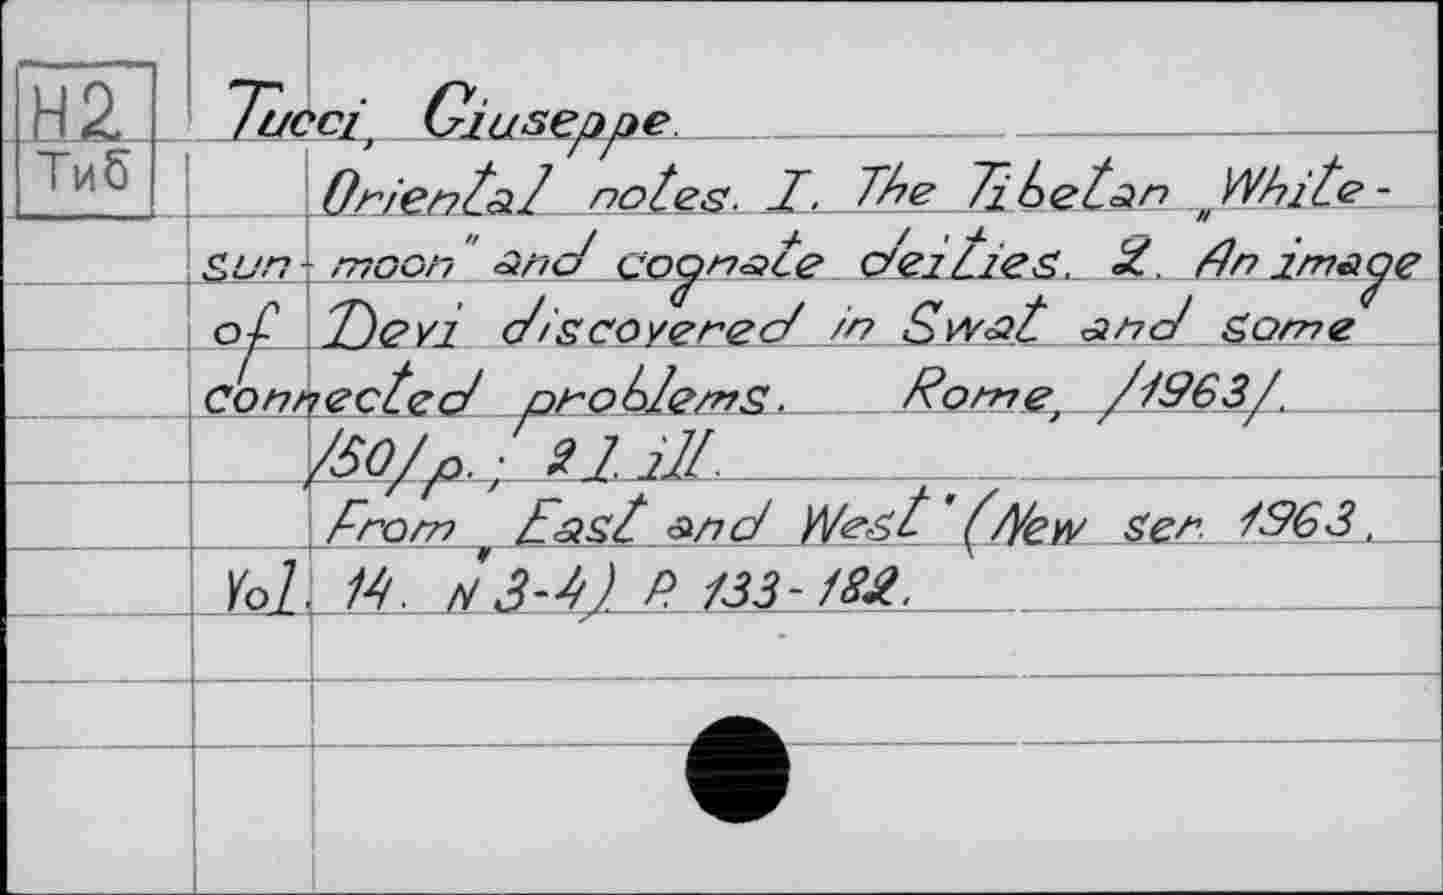 H2
Тиб
Tucci, Giuseppe.
Oriental notes. I. The Tibetan „White-
sun-moon" and cognate deities. 2. An image
of Devi discovered in Swat and some
connected problems. Rome, /1963/.
/50/p.; 2 l. ill.
From „East and West" (New ser. 1963.
Vol. 14. N 3-4) P. 133-182.